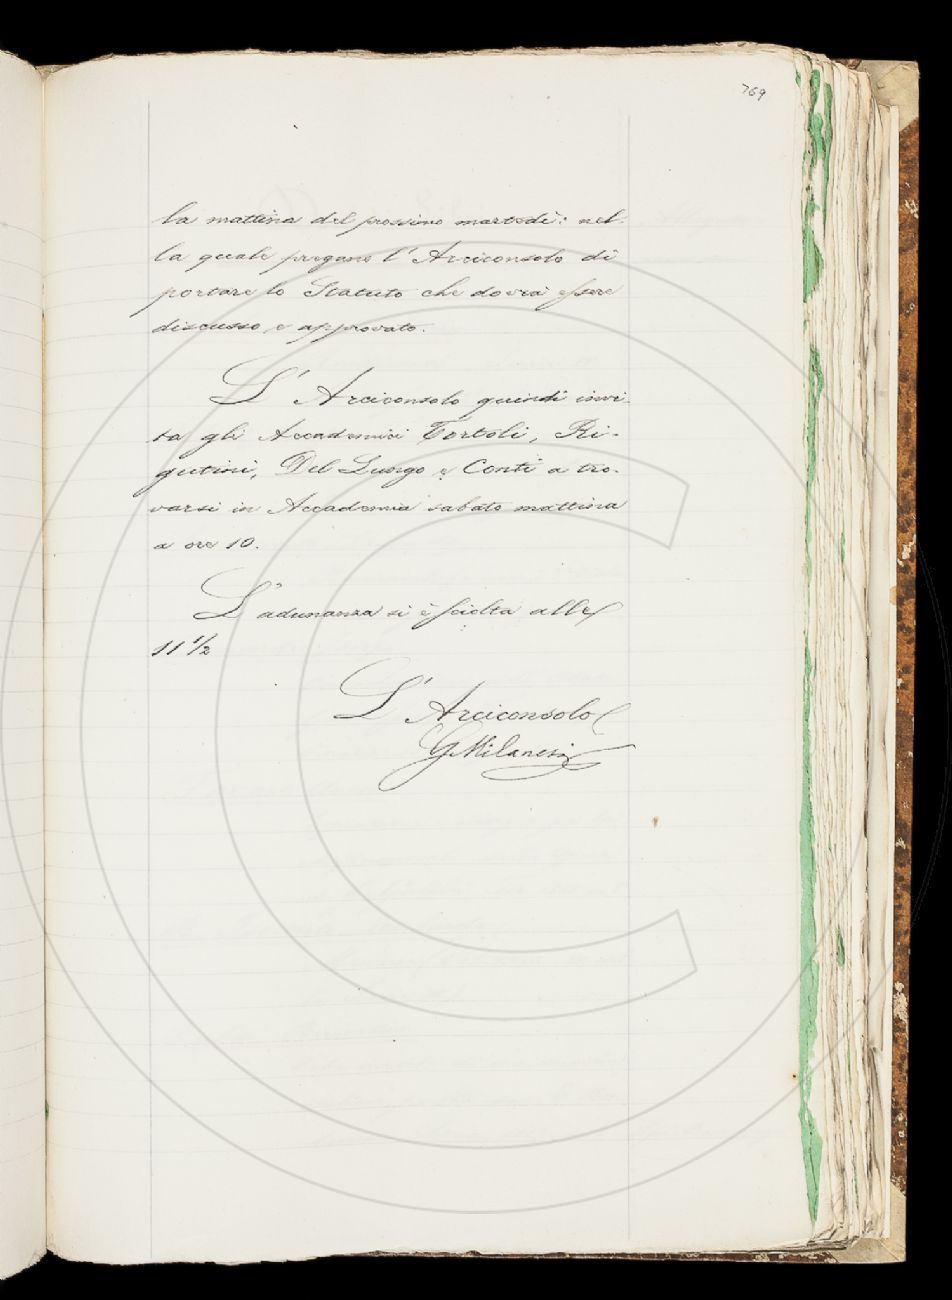 769
la mattina del prossimo martedì: nel-
la quale pregano l'Arciconsolo di
portare lo Statuto che dovrà essere
discusso e approvato.
L'Arciconsolo quindi invi-
ta gli Accademici Tortoli, Ri-
gutini, Del Lungo e Conti a tro-
varsi in Accademia sabato mattina
a ore 10.
L'adunanza si è sciolta alle
11 1/2
L'Arciconsolo
G Milanesi